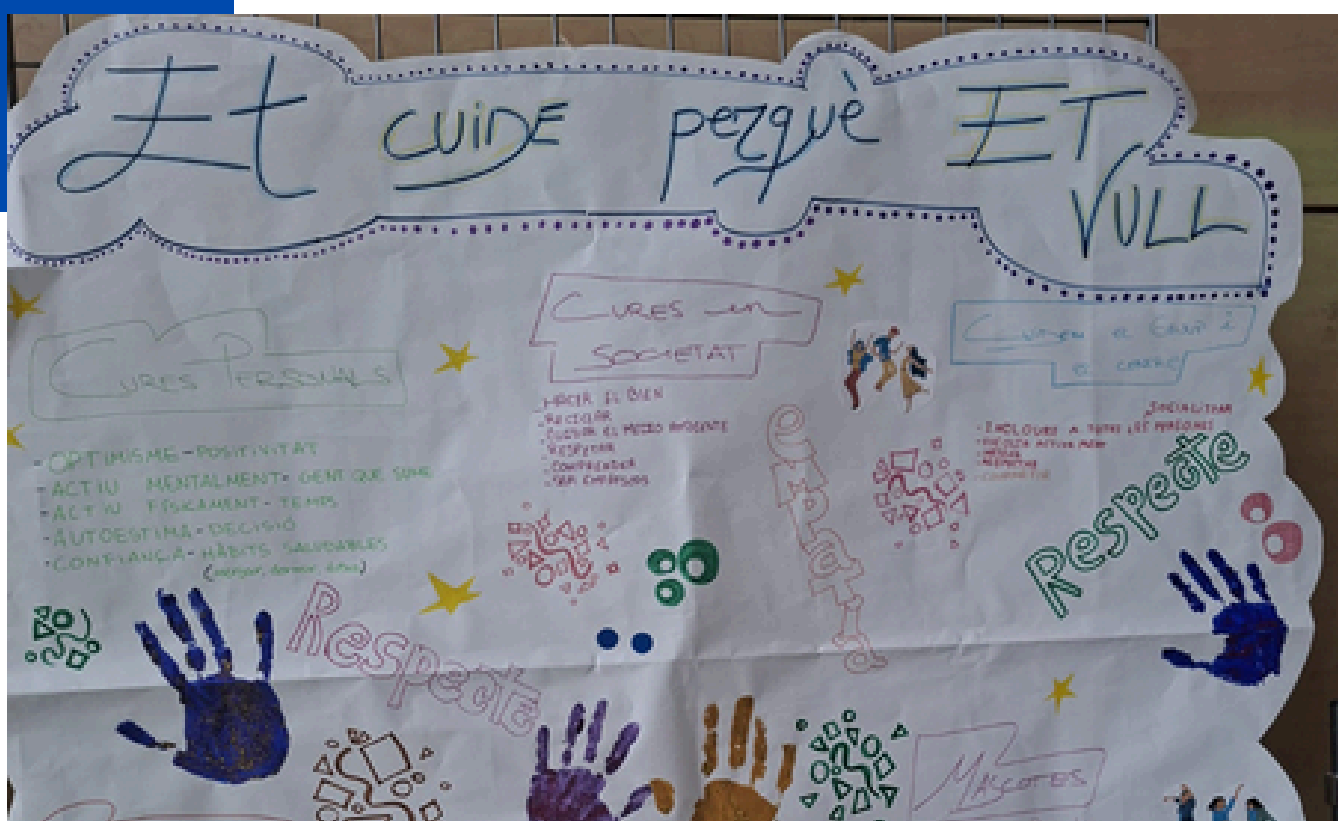 Et CUIDE perquè ET
VULL
CURES PERSONALS
- OPTIMISME - POSITIVITAT
- ACTIU MENTALMENT - GENT QUE SUME
- ACTIU FÍSICAMENT - TEMPS
- AUTOESTIMA - DECISIÓ
- CONFIANÇA - HÀBITS SALUDABLES
CURES en
SOCIETAT
HACER EL BIEN
- RECICLAR
- CUIDAR EL MEDIO AMBIENTE
- RESPETAR
- COMPRENDER
- SER EMPÁTICOS
EMPATIA
CUIDEM EL GRUP i
SOCIALITZAR
- INCLOURE A TOTES LES PERSONES
- ESCOLTA ACTIVA
Respecte
Respecte
MASCOTES